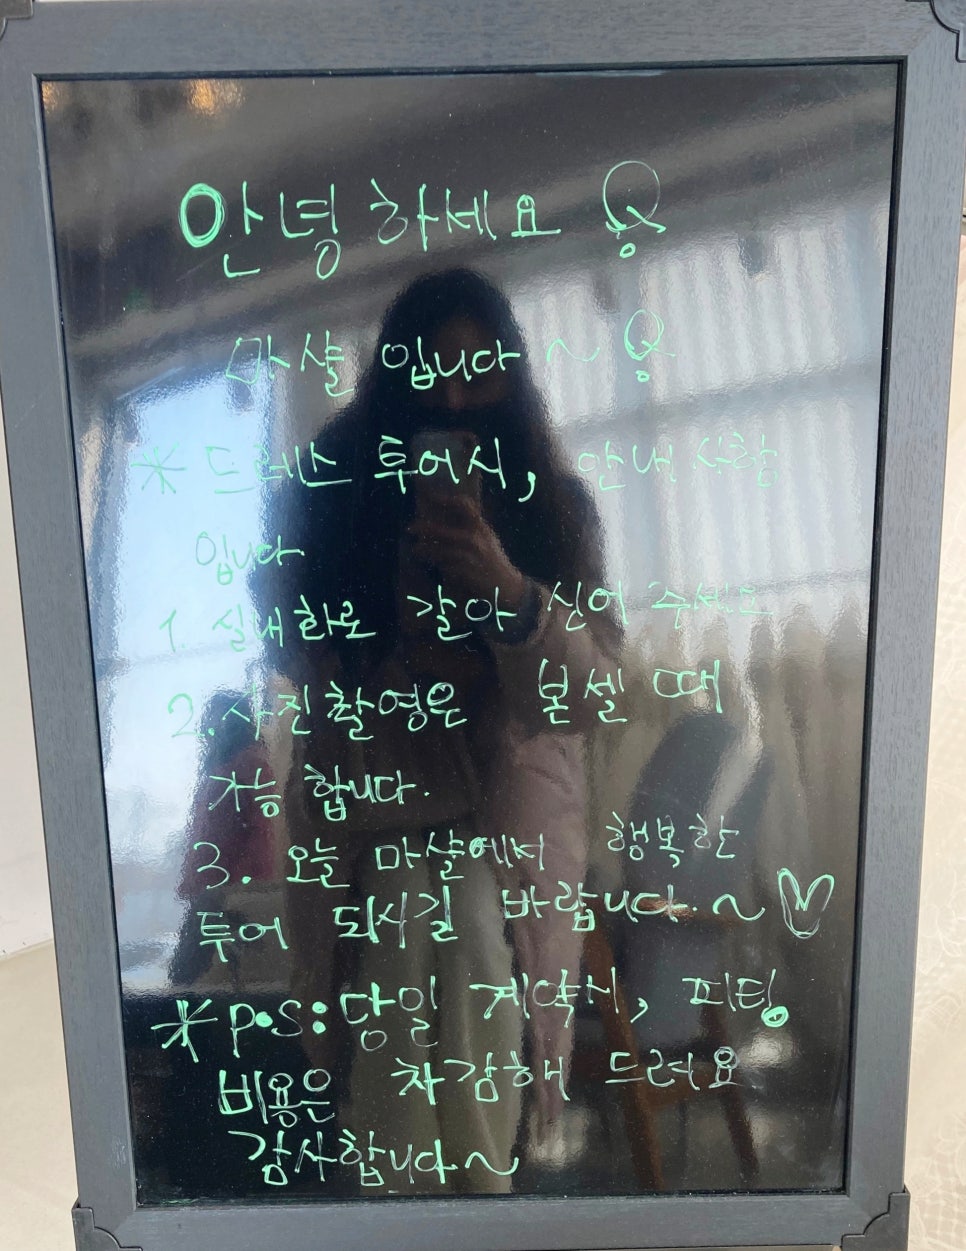 안녕하세요
마샬 입니다~
* 드레스 투어시, 안내 사항
입니다
1. 실내화로 갈아 신어 주세요
2. 사진촬영은 본셀 때
가능 합니다.
3. 오늘 마샬에서 행복한
투어 되시길 바랍니다.~♡
* P.S: 당일 계약시, 피팅
비용은 차감해 드려요
감사합니다~